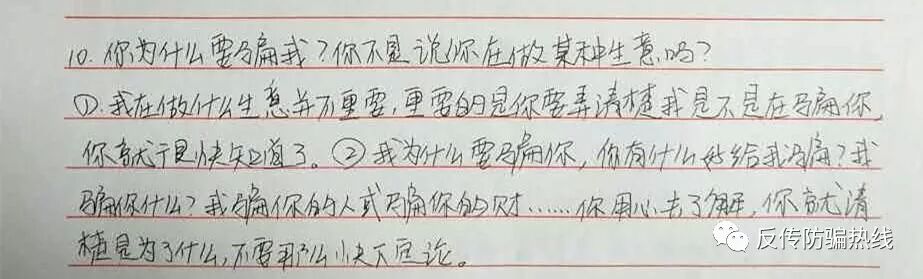 10. 你为什么要骗我？你不是说你在做某种生意吗？
①. 我在做什么生意并不重要，重要的是你要弄清楚我是不是在骗你，
你就于是快知道了。② 我为什么要骗你，你有什么好给我骗？我
骗你什么？我骗你的人或骗你的财……你用心去了解，你就清
楚是为了什么，不要那么快下定论。
反传防骗热线